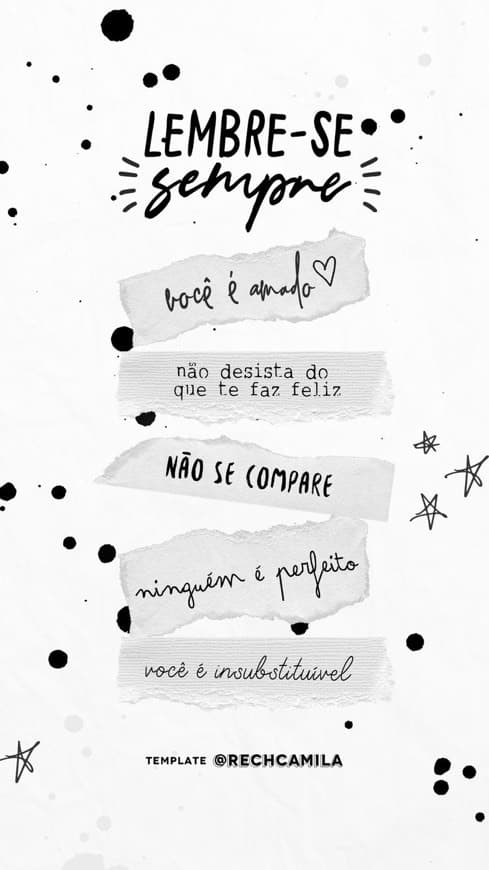 LEMBRE-SE
sempre
você é amado
não desista do
que te faz feliz
NÃO SE COMPARE
ninguém é perfeito
você é insubstituível
TEMPLATE @RECHCAMILA